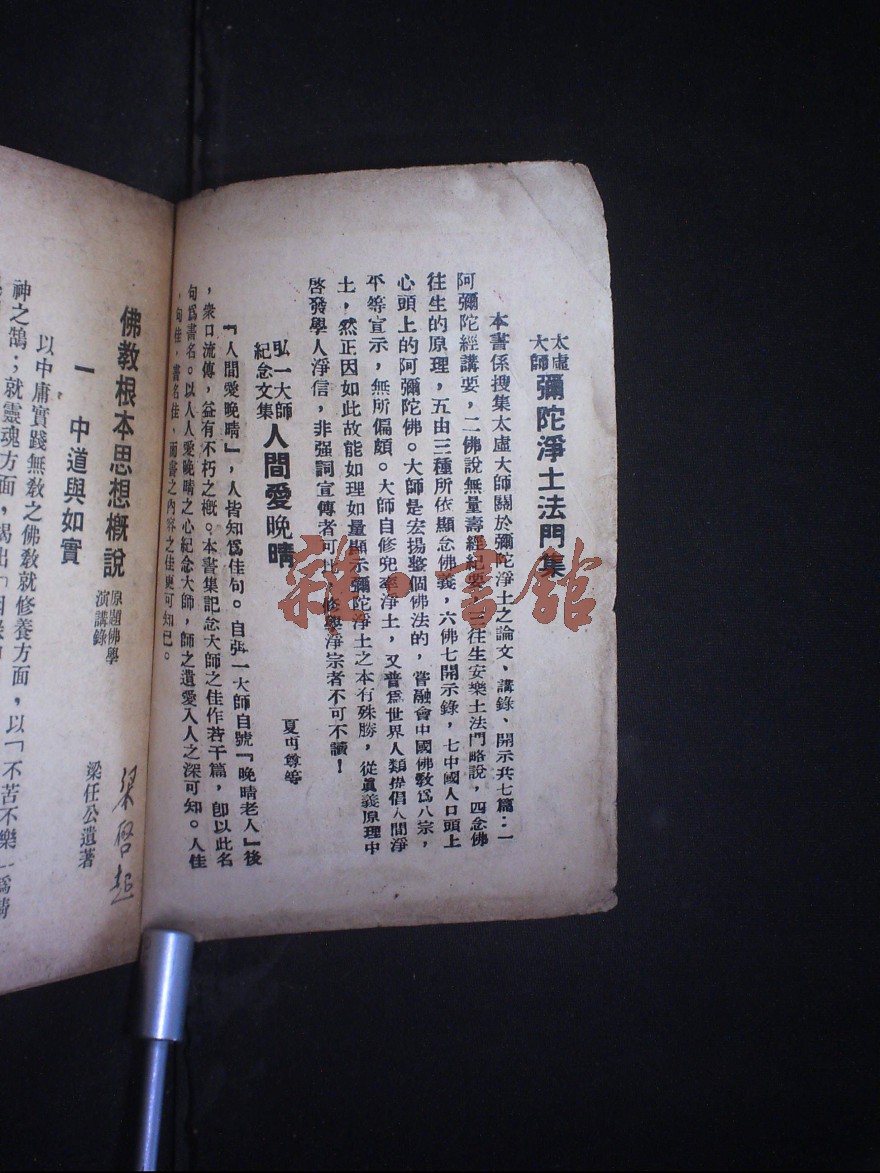 太虛大師 彌陀淨土法門集
本書係搜集太虛大師關於彌陀淨土之論文、講錄、開示共七篇：一
阿彌陀經講要，二佛說無量壽經紀要，三往生安樂土法門略說，四念佛
往生的原理，五由三種所依顯念佛義，六佛七開示錄，七中國人口頭上
心頭上的阿彌陀佛。大師是宏揚整個佛法的，嘗融會中國佛敎爲八宗，
平等宣示，無所偏頗。大師自修兜率淨土，又普爲世界人類提倡人間淨
土，然正因如此故能如理如量顯示彌陀淨土之本有殊勝，從眞義原理中
啓發學人淨信，非强詞宣傳者可比，修學淨宗者不可不讀！
弘一大師紀念文集 人間愛晚晴
夏丏尊等
『人間愛晚晴』，人皆知爲佳句。自弘一大師自號『晚晴老人』後
，衆口流傳，益有不朽之槪。本書集記念大師之佳作若干篇，卽以此名
句爲書名。以人人愛晚晴之心紀念大師，師之遺愛入人之深可知。人佳
，句佳，書名佳，而書之內容之佳更可知已。
佛敎根本思想槪說 原題佛學演講錄
梁任公遺著
梁啓超
一 中道與如實
以中庸實踐無敎之佛敎就修養方面，以「不苦不樂」爲精
神之鵠；就靈魂方面，揭出「因緣
雜·書館